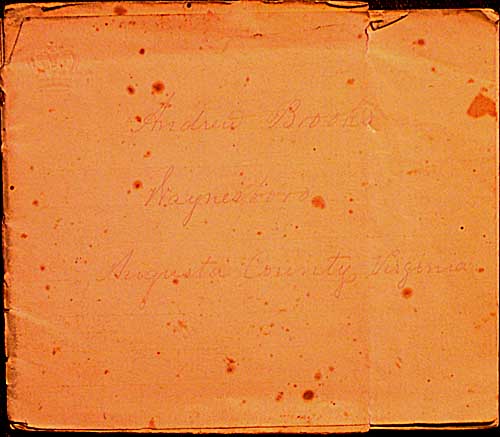 Andrew Brooks
Waynesboro
Augusta County, Virginia